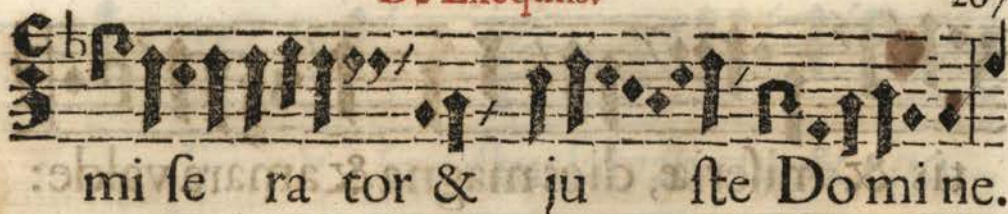 De Exequiis. 267
mi ſe ra tor & ju ſte Do mi ne.